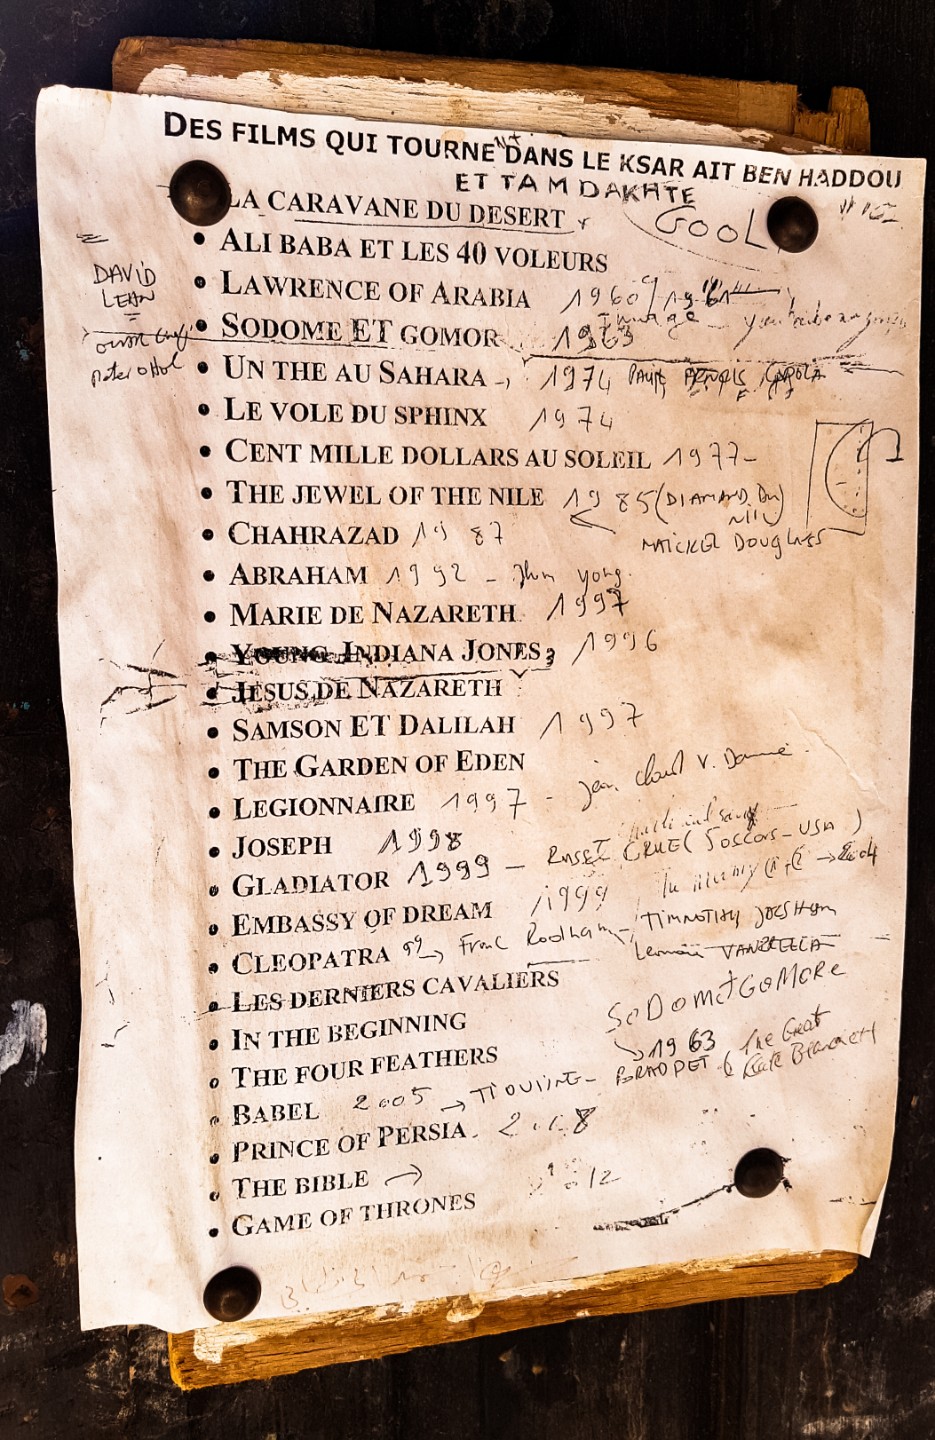 DES FILMS QUI TOURNE DANS LE KSAR AIT BEN HADDOU
ET TAMDAKHTE
LA CARAVANE DU DESERT
GOOL
• ALI BABA ET LES 40 VOLEURS
DAVID
LEAN
• LAWRENCE OF ARABIA 1960
• SODOME ET GOMOR 1963
• UN THE AU SAHARA 1974
• LE VOLE DU SPHINX 1974
• CENT MILLE DOLLARS AU SOLEIL 1977-
• THE JEWEL OF THE NILE 1985 (DIAMAND DU
NIL)
MAICKEL DOUGLASS
• CHAHRAZAD 1987
• ABRAHAM 1992 - Jhon yong
• MARIE DE NAZARETH 1997
• YOUNG INDIANA JONES 1996
• JESUS DE NAZARETH
• SAMSON ET DALILAH 1997
• THE GARDEN OF EDEN
• LEGIONNAIRE 1997 - jean claud V. Damme
• JOSEPH 1998
• GLADIATOR 1999 - CRUE (5 OSCORS - USA)
• EMBASSY OF DREAM 1999
• CLEOPATRA Franc Rodham - TIMNOTHY
• LES DERNIERS CAVALIERS
SODOMetGOMORe
1963
• IN THE BEGINNING
• THE FOUR FEATHERS
• BABEL 2005 → BRAD PET & The Great
• PRINCE OF PERSIA
• THE BIBLE →
• GAME OF THRONES